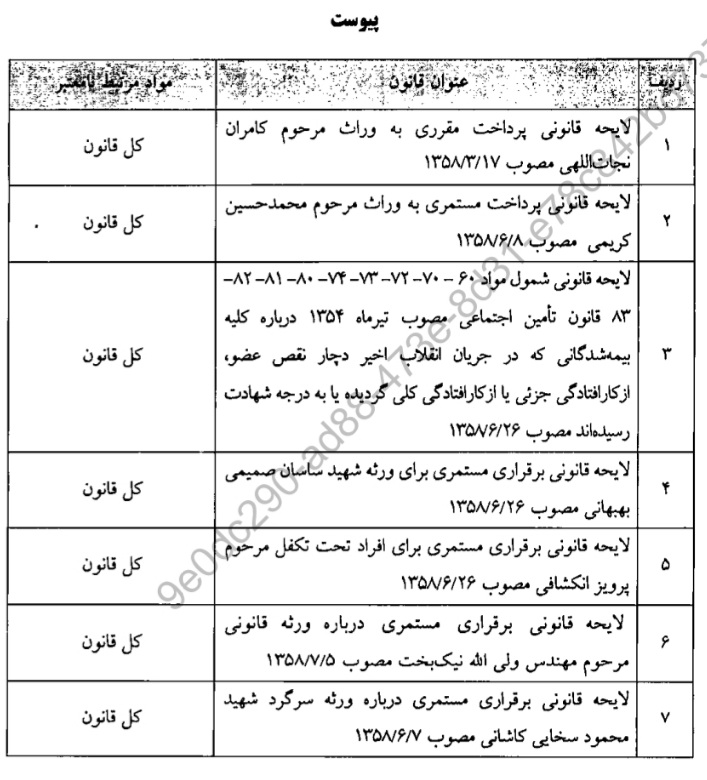 پیوست
ردیف عنوان قانون مواد مرتبط نامعتبر
۱ لایحه قانونی پرداخت مقرری به وراث مرحوم کامران کل قانون
نجات‌اللهی مصوب ۱۳۵۸/۳/۱۷
۲ لایحه قانونی پرداخت مستمری به وراث مرحوم محمدحسین کل قانون
کریمی مصوب ۱۳۵۸/۶/۸
لایحه قانونی شمول مواد ۶۰ – ۷۰– ۷۲– ۷۳– ۷۴– ۸۰– ۸۱– ۸۲–
۸۳ قانون تأمین اجتماعی مصوب تیرماه ۱۳۵۴ درباره کلیه
۳ بیمه‌شدگانی که در جریان انقلاب اخیر دچار نقص عضو، کل قانون
ازکارافتادگی جزئی یا ازکارافتادگی کلی گردیده یا به درجه شهادت
رسیده‌اند مصوب ۱۳۵۸/۶/۲۶
۴ لایحه قانونی برقراری مستمری برای ورثه شهید ساسان صمیمی کل قانون
بهبهانی مصوب ۱۳۵۸/۶/۲۶
۵ لایحه قانونی برقراری مستمری برای افراد تحت تکفل مرحوم کل قانون
پرویز انکشافی مصوب ۱۳۵۸/۶/۲۶
۶ لایحه قانونی برقراری مستمری درباره ورثه قانونی کل قانون
مرحوم مهندس ولی الله نیک‌بخت مصوب ۱۳۵۸/۷/۵
۷ لایحه قانونی برقراری مستمری درباره ورثه سرگرد شهید کل قانون
محمود سخایی کاشانی مصوب ۱۳۵۸/۶/۷